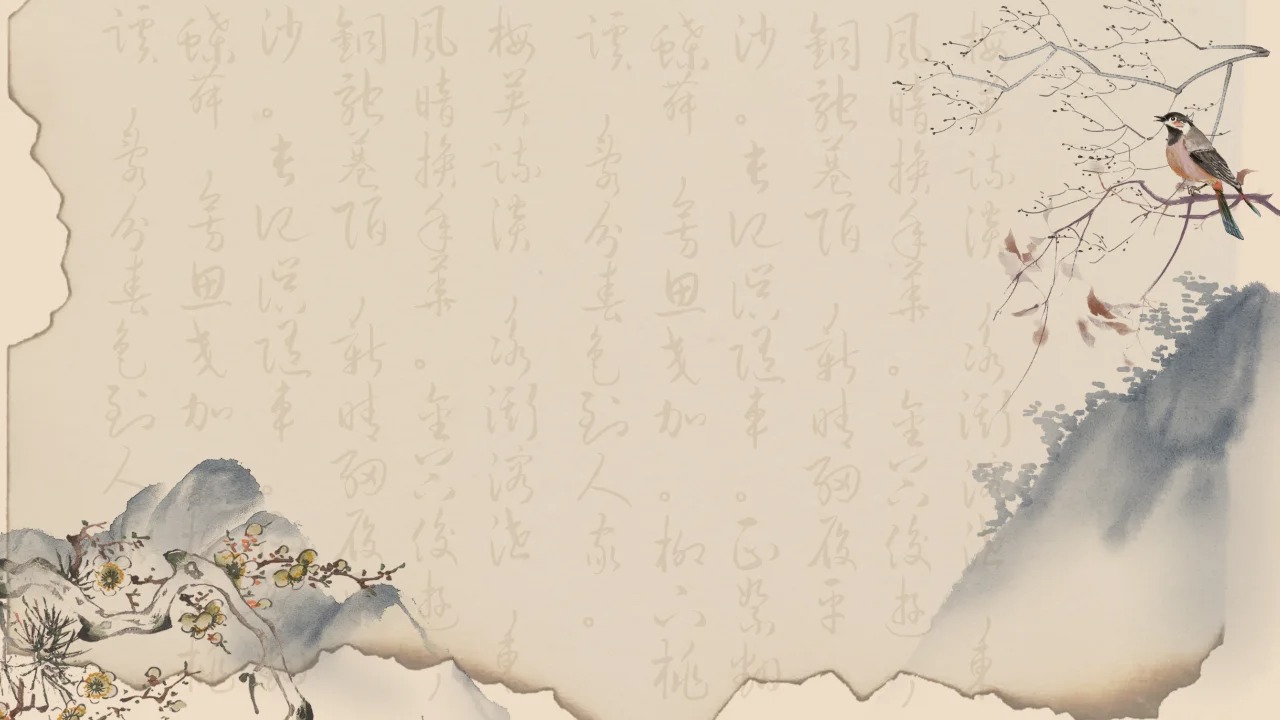 梅英疏淡，冰澌溶洩，東
風暗換年華。金谷俊遊，
銅駝巷陌，新晴細履平
沙。長記誤隨車。正絮翻
蝶舞，芳思交加。柳下桃
蹊，亂分春色到人家。
梅英疏淡，冰澌溶洩，東
風暗換年華。金谷俊遊，
銅駝巷陌，新晴細履
沙。長記誤隨車
蝶舞，芳思交加
蹊，亂分春色到人